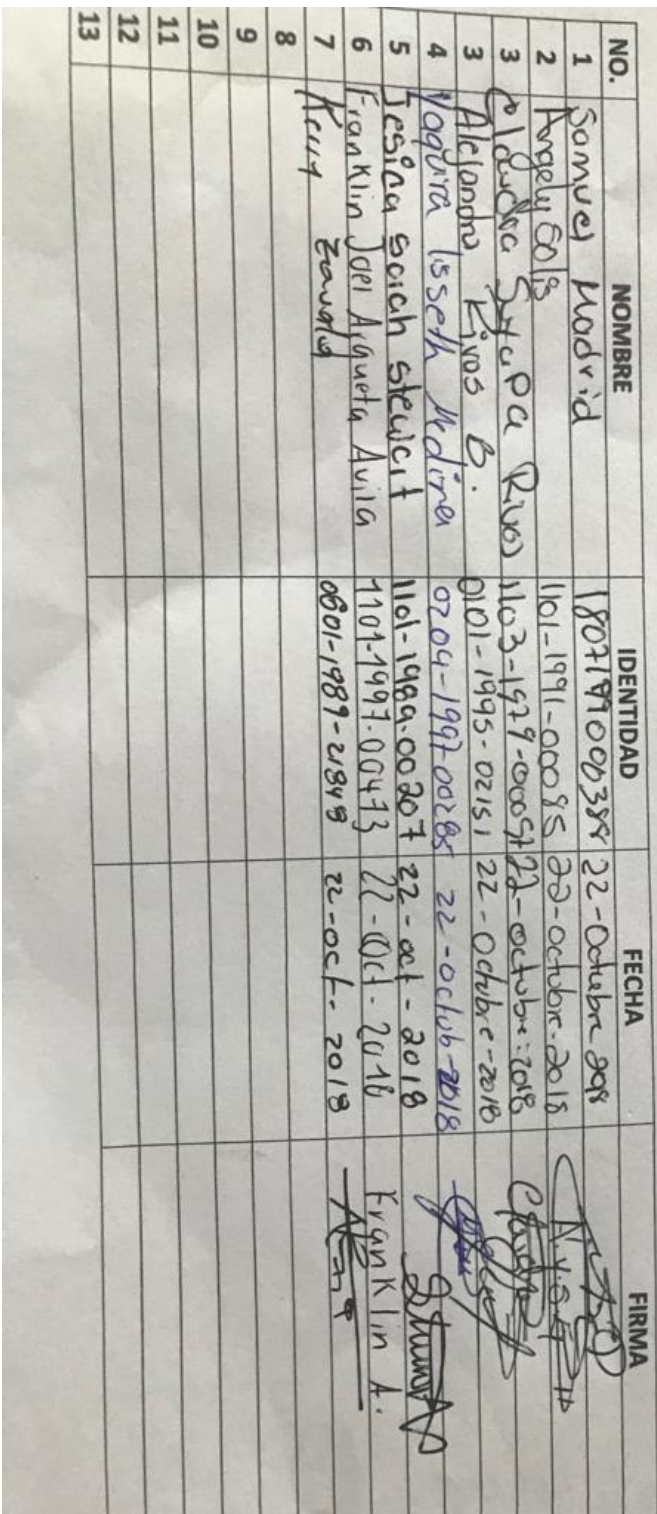 NO. NOMBRE IDENTIDAD FECHA FIRMA
1 Samuel Madrid 22-Octubre
2 Angely Solis 1101-1991-00085 22-octubre-2018
3 Claudia Rivas 1103-1979-00057 22-octubre-2018 Claudia
3 Alejandra Rivas B. 0101-1995-02151 22-Octubre-2018
4 Yaquira lisseth Medina 0209-1997-00285 22-octub-2018
5 Jesica sarah 1101-1989-00207 22-oct-2018
6 Franklin Joel Argueta Avila 1101-1997-00473 22-Oct-2018 Franklin A.
7 Zavala 0801-1989-21849 22-oct-2018
8
9
10
11
12
13